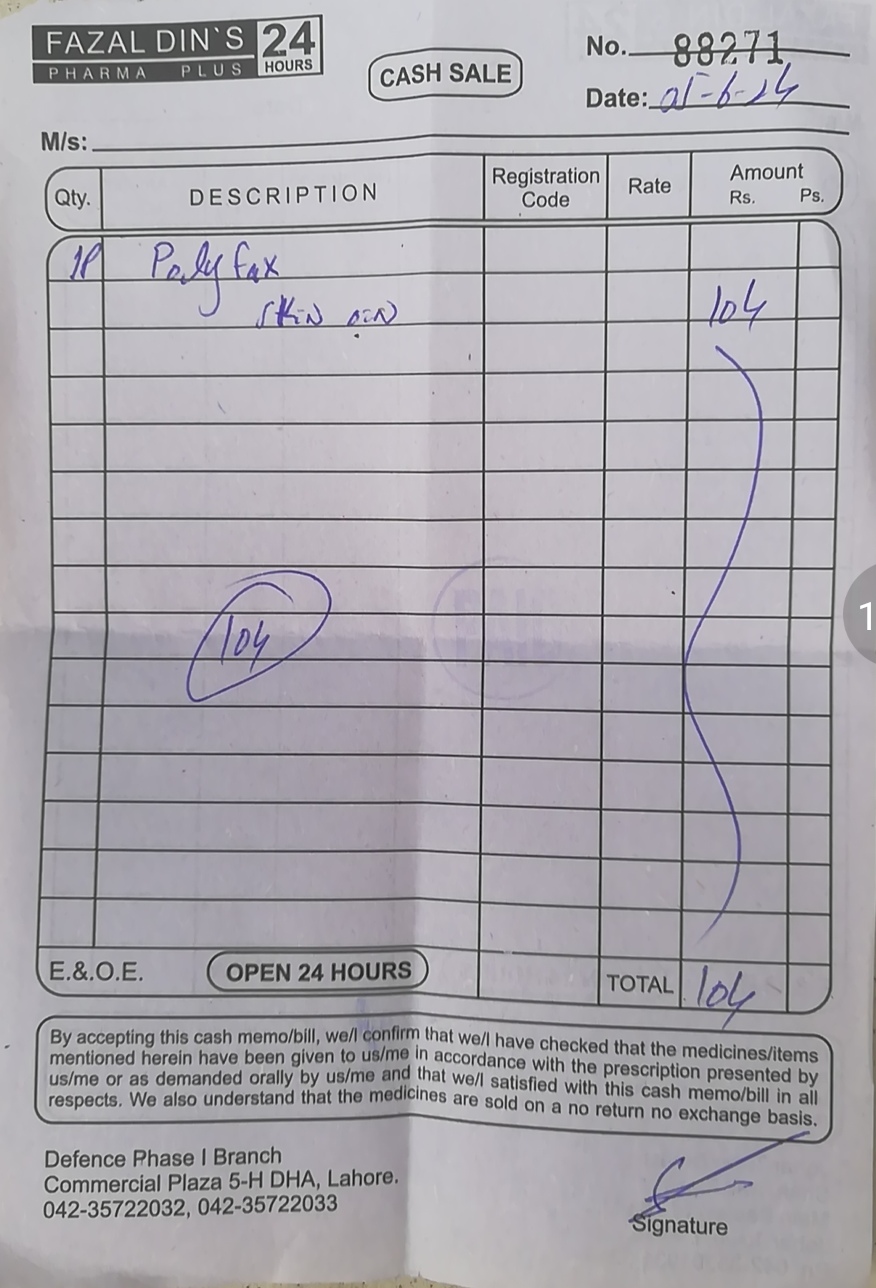 FAZAL DIN`S 24
PHARMA PLUS HOURS
CASH SALE
No. 88271
Date: 05-6-24
M/s:
Qty. DESCRIPTION Registration Code Rate Amount Rs. Ps.
1P Polyfax
skin oin 104
104
E.&O.E. OPEN 24 HOURS TOTAL 104
By accepting this cash memo/bill, we/I confirm that we/I have checked that the medicines/items
mentioned herein have been given to us/me in accordance with the prescription presented by
us/me or as demanded orally by us/me and that we/I satisfied with this cash memo/bill in all
respects. We also understand that the medicines are sold on a no return no exchange basis.
Defence Phase I Branch
Commercial Plaza 5-H DHA, Lahore.
042-35722032, 042-35722033
Signature
1